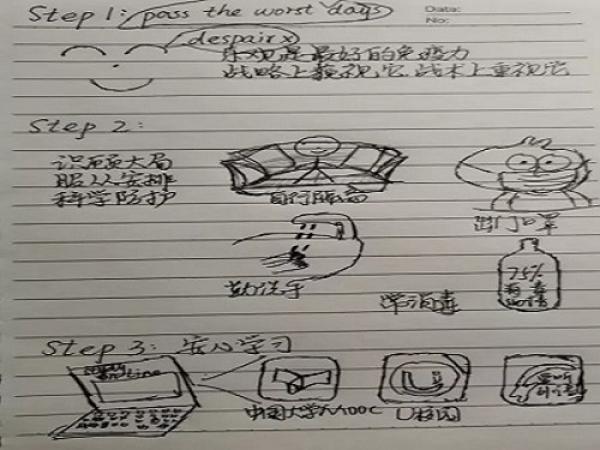 Data:
No:
Step 1: pass the worst days
despair x
乐观是最好的免疫力
战略上藐视它 战术上重视它
Step 2:
识大局
服从安排
科学防护
自行隔离
出门口罩
勤洗手
常消毒
75%
酒精
Step 3: 安心学习
online
中国大学MOOC
U校园